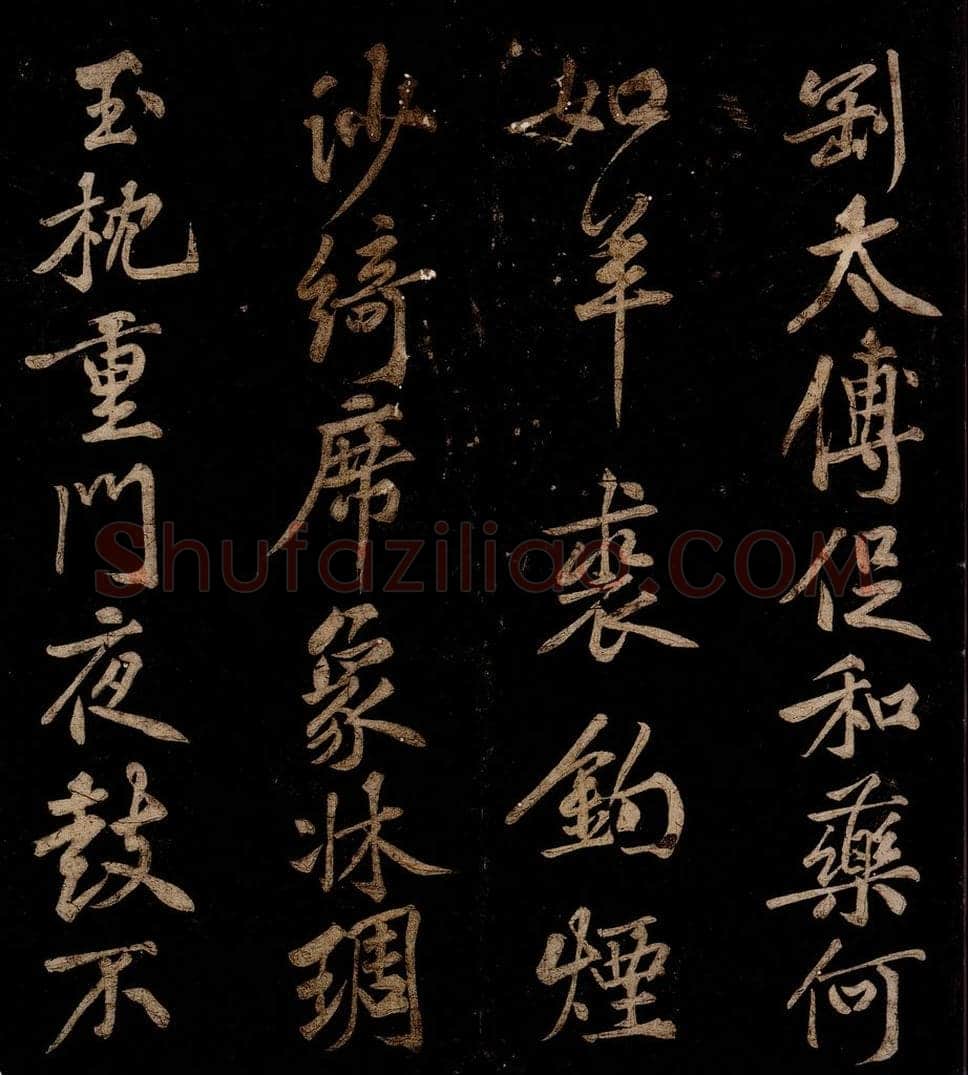 劉太傅促和藥何
如羊裘釣煙
沙綺席象牀琱
玉枕重門夜鼓不
Shufaziliao.COM